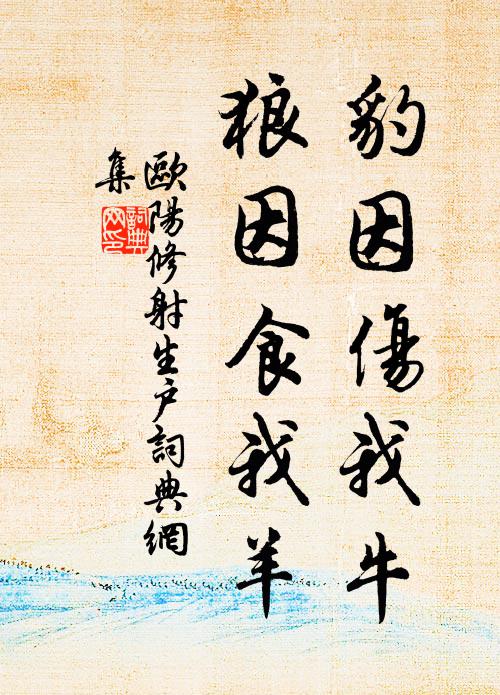 豹因傷我牛
狼因食我羊
歐陽修射生户詞典網
集
詞典
网印